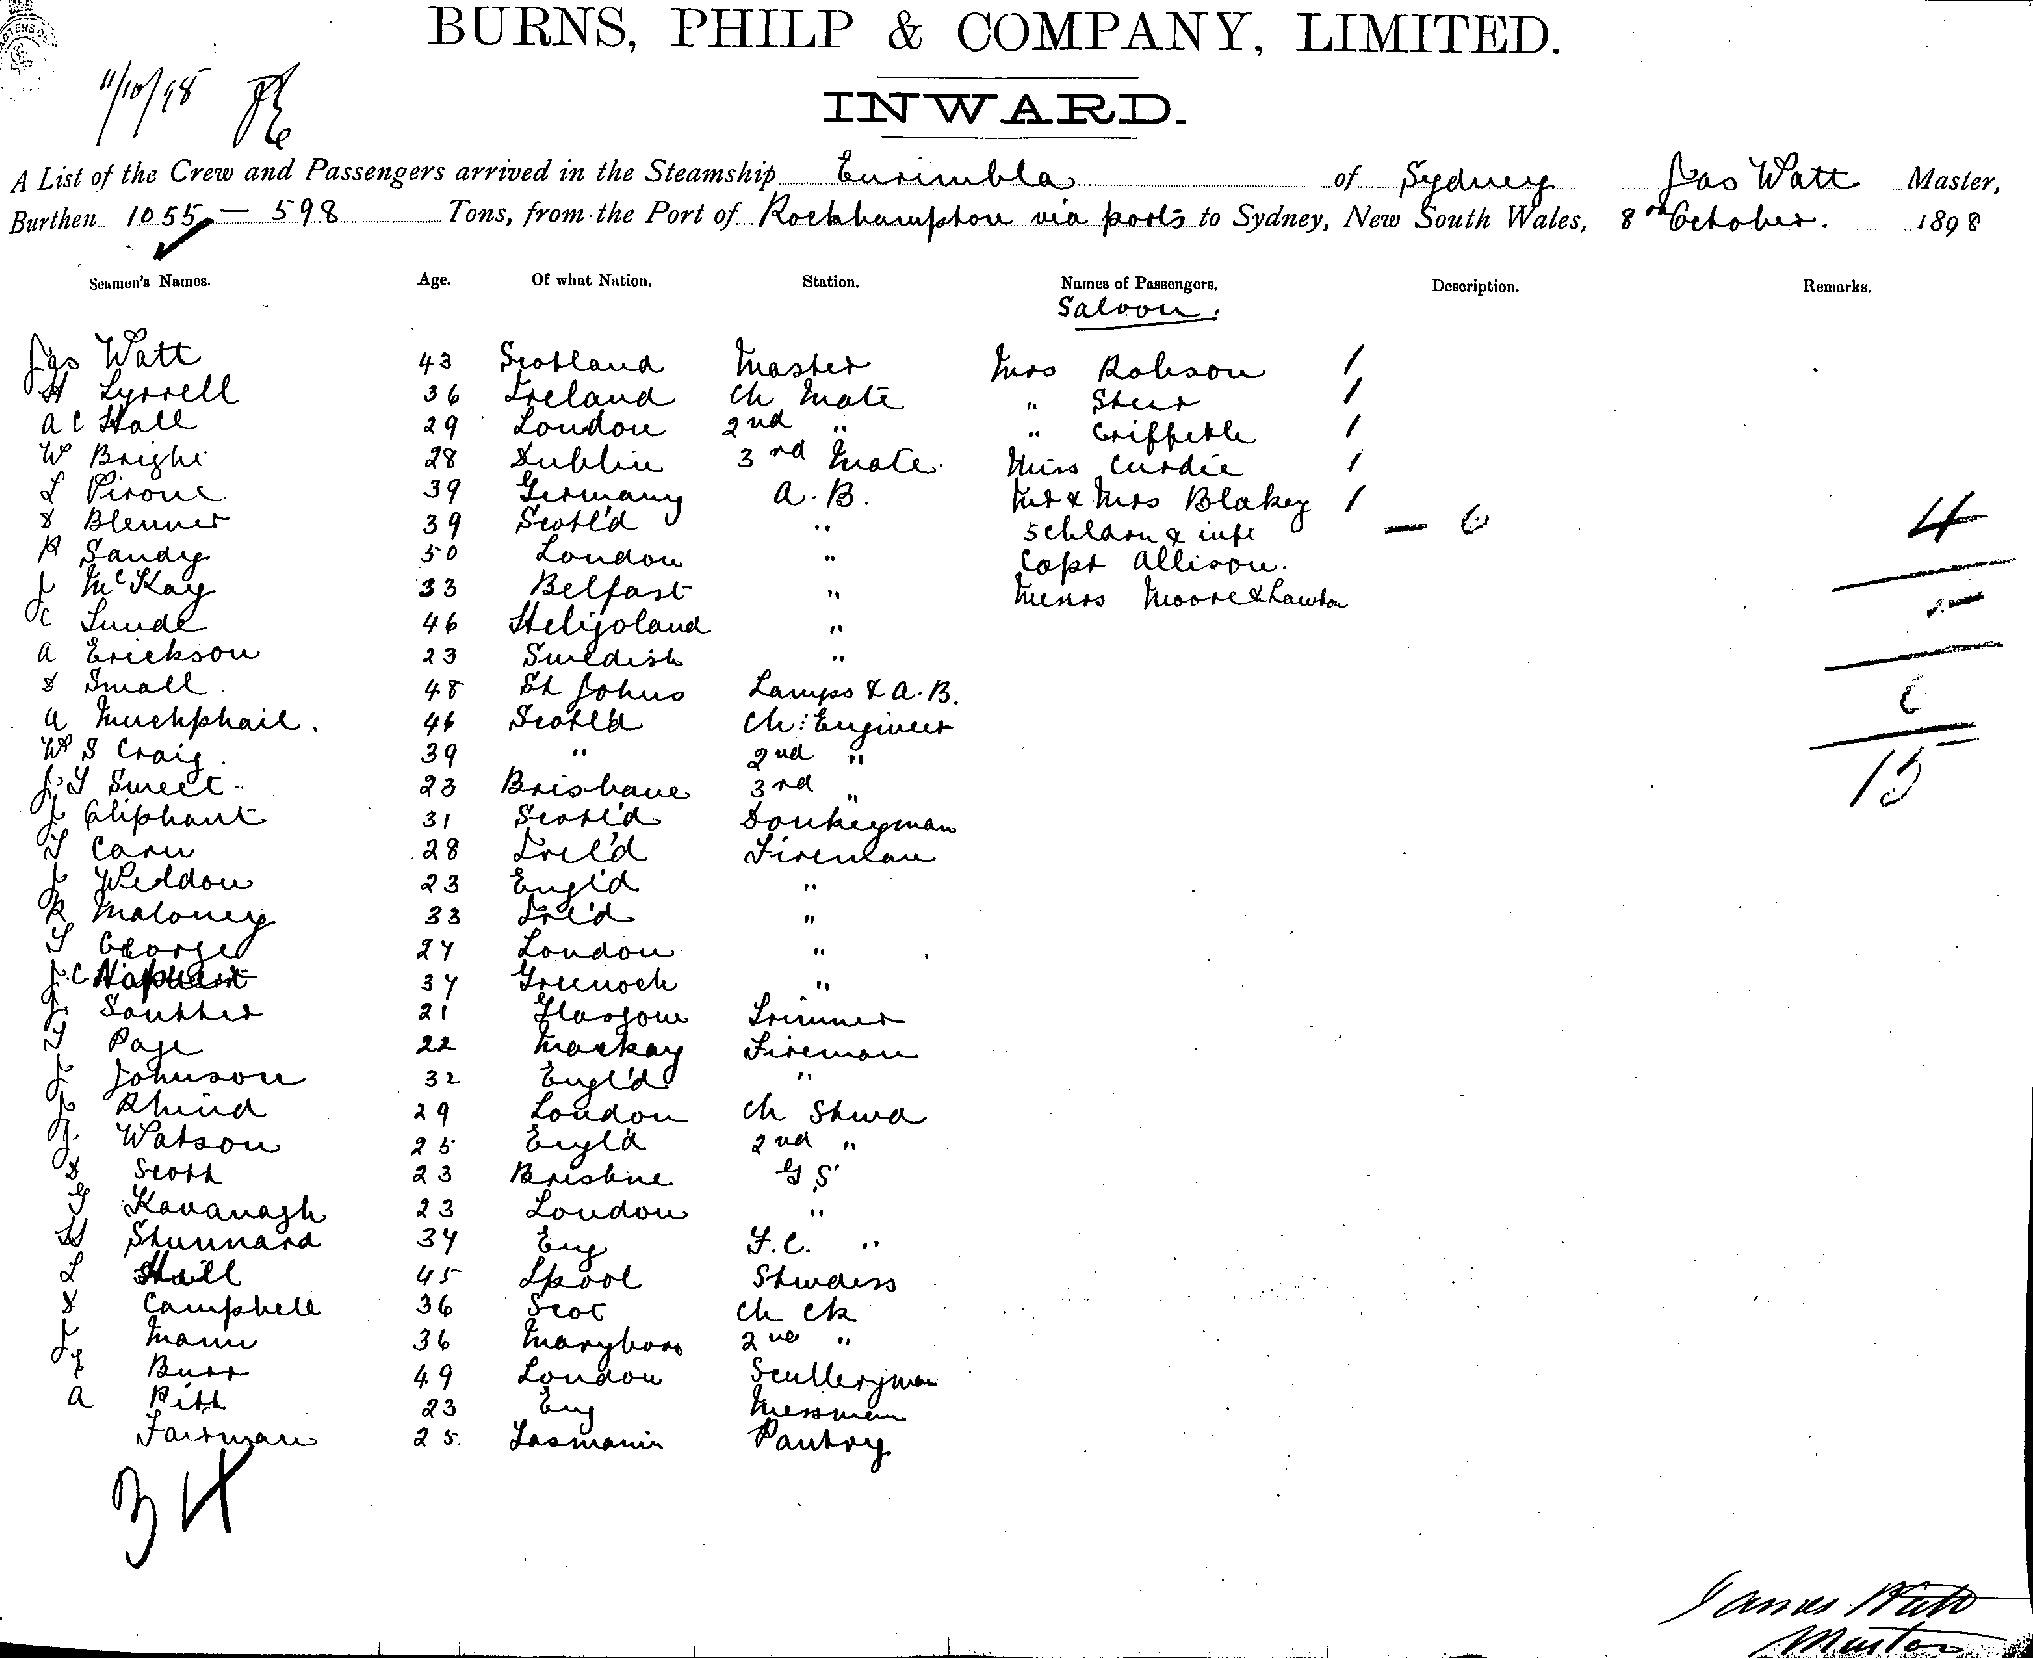 BURNS, PHILP & COMPANY, LIMITED.
11/10/98
INWARD.
A List of the Crew and Passengers arrived in the Steamship Eurimbla of Sydney Jas Watt Master,
Burthen 1055 — 598 Tons, from the Port of Rockhampton via ports to Sydney, New South Wales, 8 October. 1898
Seamen's Names. Age. Of what Nation. Station. Names of Passengers. Description. Remarks.
Saloon.
Jas Watt 43 Scotland Master Mrs Robson 1
H Tyrrell 36 Ireland Ch Mate " Steer 1
A C Hall 29 London 2nd " " Griffeth 1
W Bright 28 Dublin 3rd Mate. Miss Curdie 1
L Pirone 39 Germany A.B. Mr & Mrs Blakey 1
D Blenner 39 Scotl'd " 5 Childrn & inft — 6 4
R Sandy 50 London " Capt Allison.
J McKay 33 Belfast " Messrs Moore & Lawton
C Lunde 46 Heligoland "
A Erickson 23 Swedish "
D Small 48 St Johns Lamps & A.B. 6
A Muckphail. 46 Scotl'd Ch: Engineer
W S Craig 39 " 2nd " 15
J T Sweet 23 Brisbane 3rd "
J Oliphant 31 Scotl'd Donkeyman
T Carn 28 Irel'd Fireman
J Weldon 23 Engl'd "
R Maloney 33 Irel'd "
T George 27 London "
J.C 37 Greenock "
J. Soutter 21 Glasgow Trimmer
T Page 22 Mackay Fireman
J Johnson 32 Engl'd "
J Rhind 29 London Ch Stwd
J. Watson 25 Engl'd 2nd "
D Scott 23 Brisbne G S
T Kavanagh 23 London "
H Stunnard 37 Eng F.C. "
L Hall 45 Lpool Stwdess
D Campbell 36 Scot Ch Ck
J Mann 36 Maryboro 2nd "
Burr 49 London Sculleryman
A Pitt 23 Eng Messman
Fairman 25 Tasmania Pantry
34
James Watt
Master